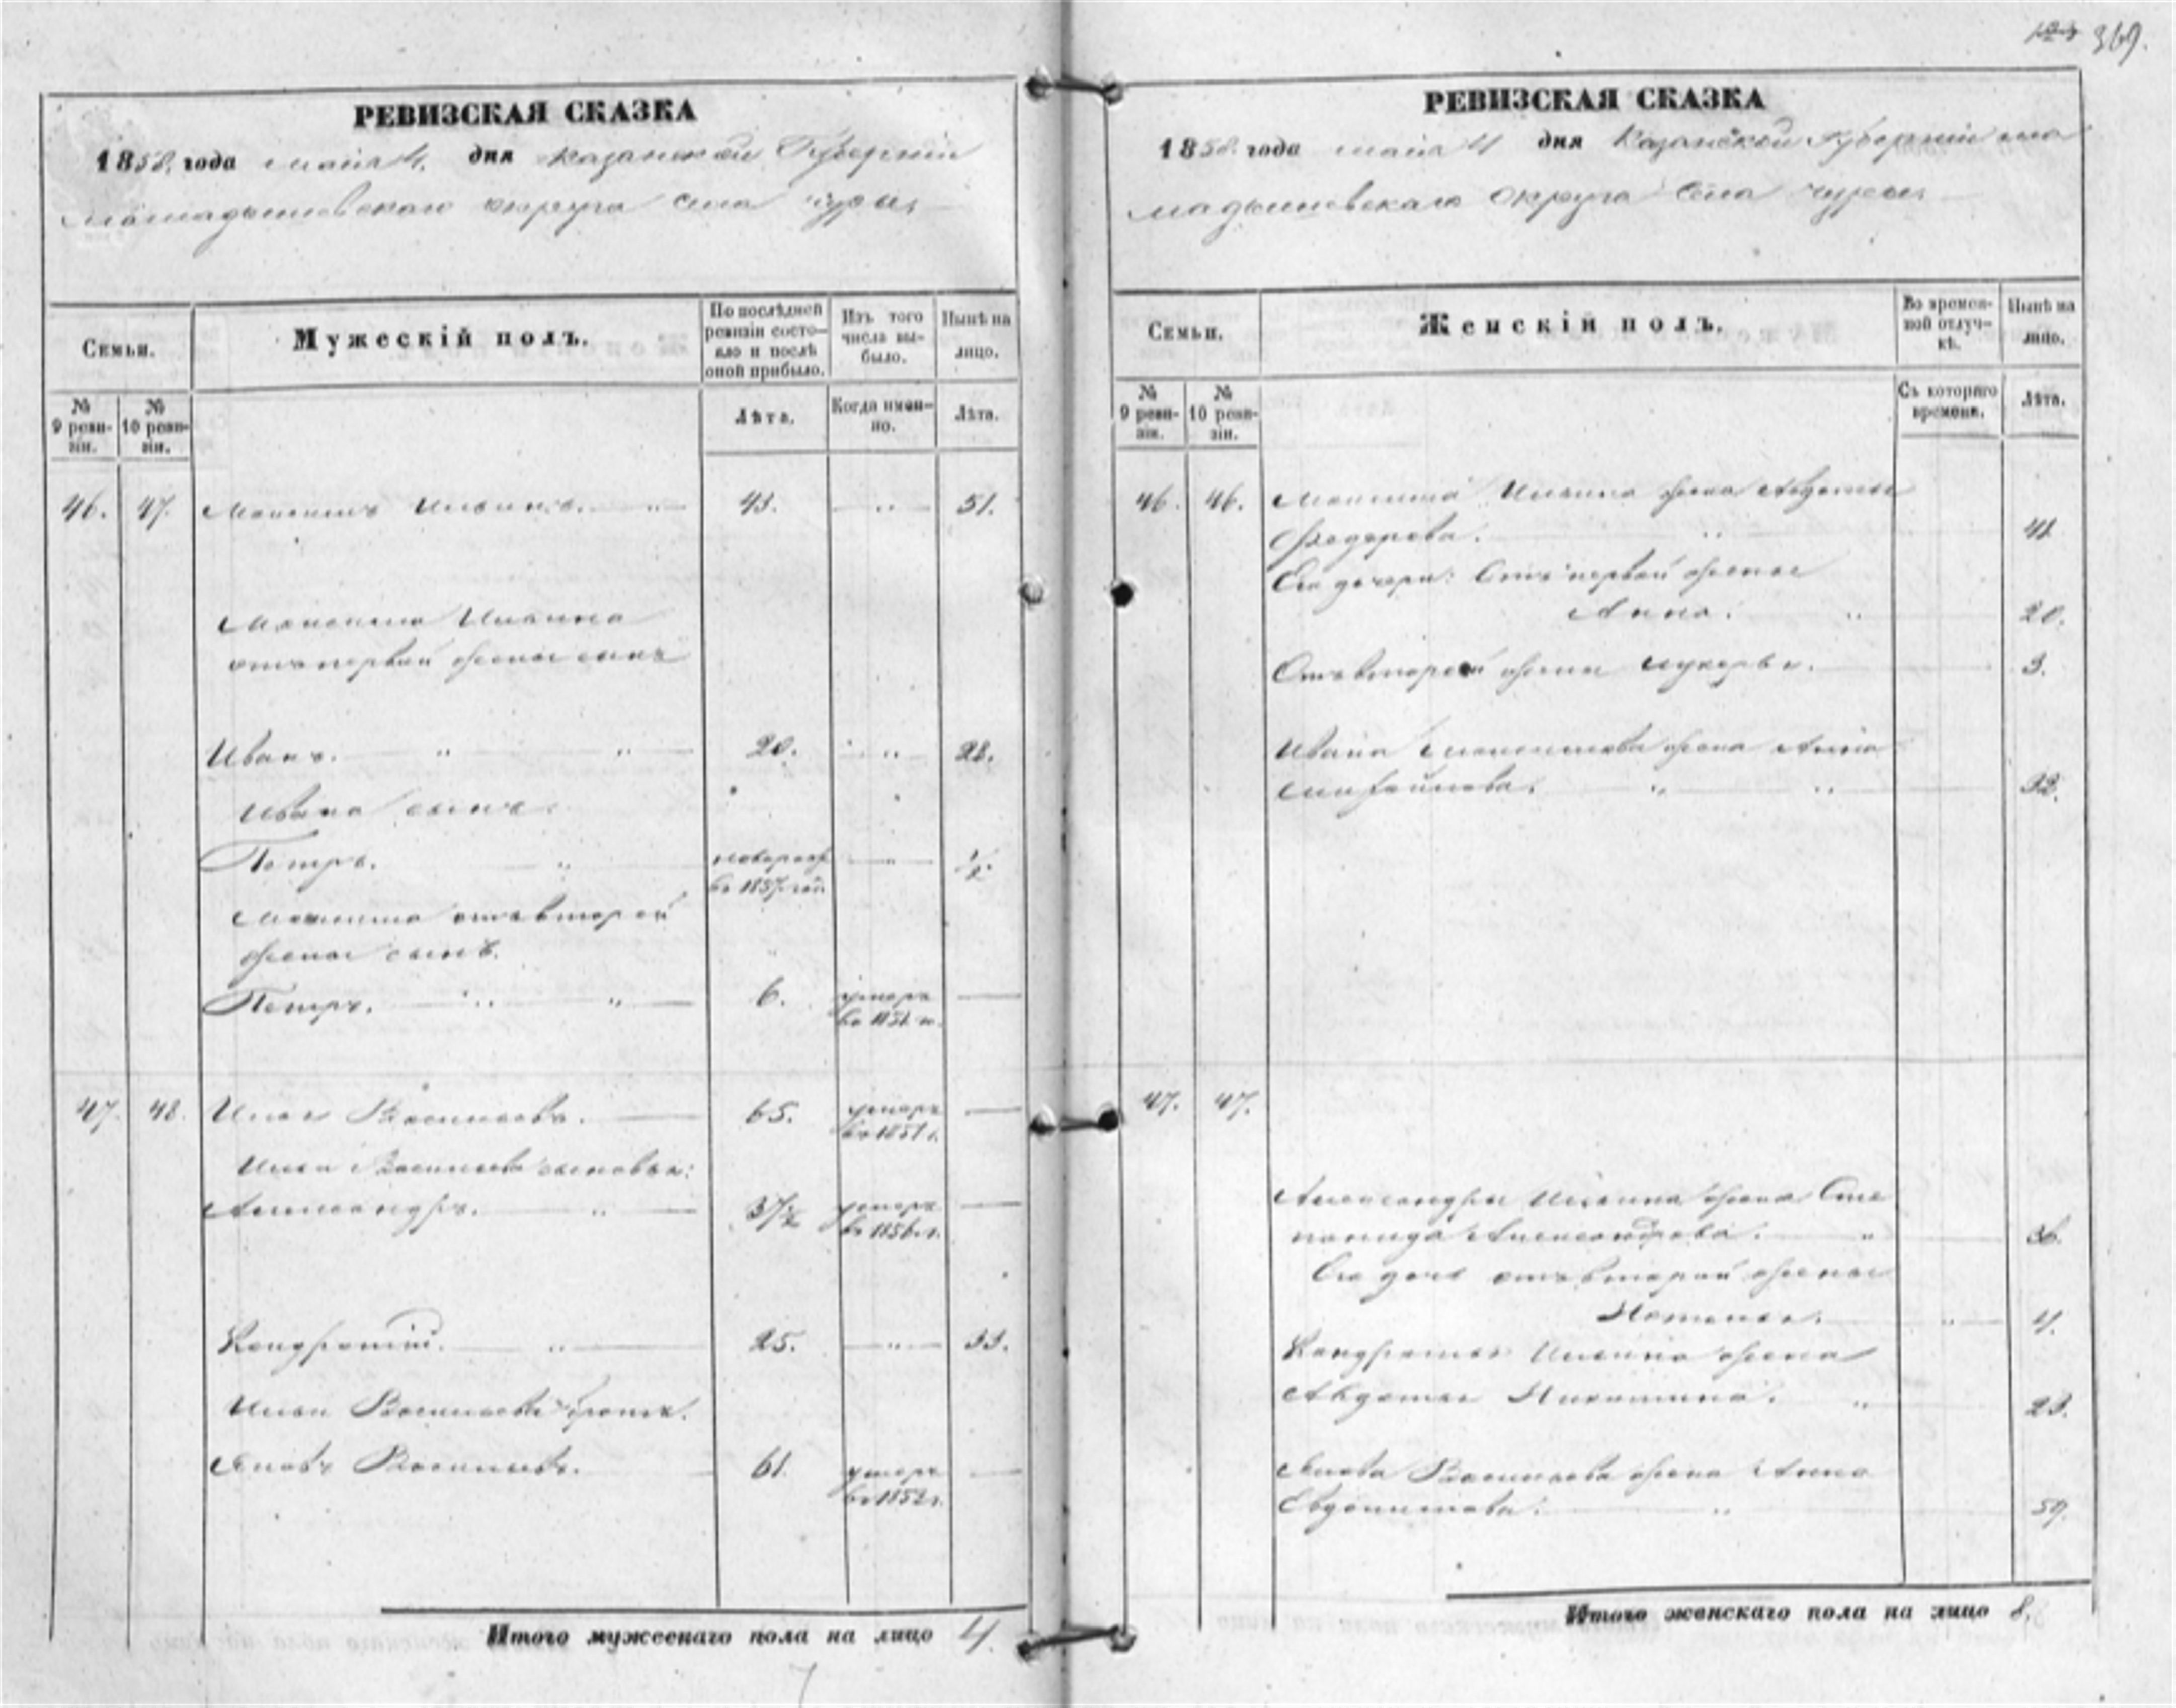 369.
РЕВИЗСКАЯ СКАЗКА
1858. года маія 4. дня Казанской Губерніи
Мамадышевскаго округа села Чуры.
Семьи.
Мужескій полъ.
По послѣдней ревизіи состояло и послѣ оной прибыло.
Изъ того числа выбыло.
Нынѣ на лицо.
№ 9 ревизіи.
№ 10 ревизіи.
Лѣта.
Когда именно.
Лѣта.
46. 47. Максимъ Ильинъ. 43. 51.
Максима Ильина
отъ первой жены сынъ
Иванъ. 20. 28.
Ивана сынъ.
Петръ. новорож. ½
въ 1857 год
Максима отъ второй
жены сынъ.
Петръ. 6. умеръ
въ
47. 48. Илья Васильевъ. 65. умеръ
въ 1851 г.
Ильи Васильева сыновья:
Александръ. 37½ умеръ
въ 1856 г.
Кондратій. 25. 33.
Ильи Васильева братъ.
Яковъ Васильевъ. 61. умеръ
въ 1852 г.
Итого мужескаго пола на лицо 4.
РЕВИЗСКАЯ СКАЗКА
1858. года маія 4 дня Казанской Губерніи Ма
мадышевскаго округа села Чуры.
Семьи.
Женскій полъ.
Во временной отлучкѣ.
Нынѣ на лицо.
№ 9 ревизіи.
№ 10 ревизіи.
Съ котораго времени.
Лѣта.
46. 46. Максима Ильина жена Авдотья
Федорова. 41
Его дочери: Отъ первой жены
Анна. 20.
Отъ второй жены Лукерья. 3.
Ивана Максимова жена Анна
Михайлова. 32.
47. 47.
Александры Ильина жена Сте
панида Александрова. 36.
Его дочь отъ второй жены
4.
Кондратья Ильина жена
Авдотья Никитина. 23.
Якова Васильева жена Анна
Евдокимова. 59.
Итого женскаго пола на лицо 8.